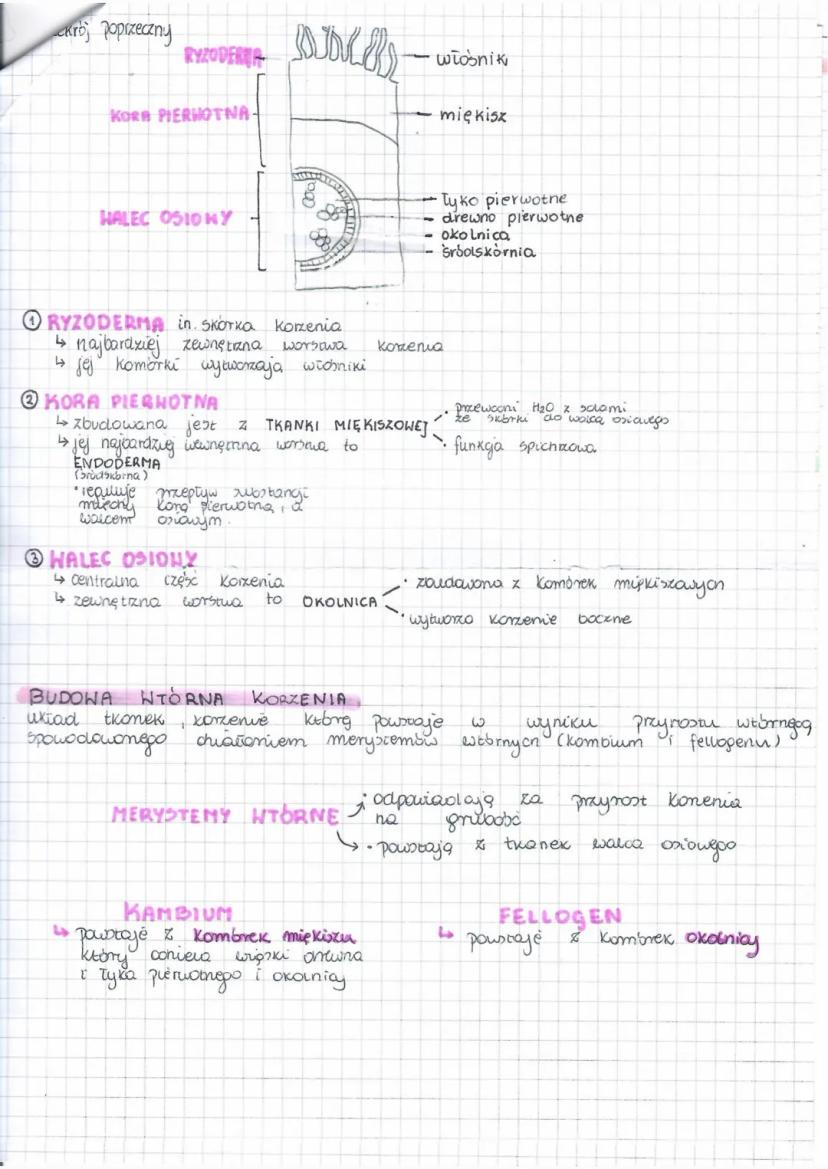 poprzeczny
RYZODERMA
włośniki
KORA PIERWOTNA
miękisz
WALEC OSIOWY
łyko pierwotne
drewno pierwotne
okolnica
śródskórnia
① RYZODERMA in. skórka korzenia
↳ najbardziej zewnętrzna warstwa korzenia
↳ jej komórki wytwarzają włośniki
② KORA PIERWOTNA
↳ zbudowana jest z TKANKI MIĘKISZOWEJ
• przewodni H₂O z solami
ze skórki do walca osiowego
• funkcja spichrzowa
↳ jej najbardziej wewnętrzna warstwa to
ENDODERMA
(śródskórna)
• reguluje przepływ substancji
między korą pierwotną, a
walcem osiowym.
③ WALEC OSIOWY
↳ centralna część korzenia
↳ zewnętrzna warstwa to OKOLNICA
• zbudowana z komórek miękiszowych
• wytwarza korzenie boczne
BUDOWA WTÓRNA KORZENIA
układ tkanek, korzenie który powstaje w wyniku przyrostu wtórnego
spowodowanego działaniem merystemów wtórnych (kambium i fellogenu)
MERYSTEMY WTÓRNE
• odpowiadają za przyrost korzenia
na grubość
• powstają z tkanek walca osiowego
KAMBIUM
↳ powstaje z komórek miękiszu
który oddziela wiązki drewna
i łyka pierwotnego i okolnicy
FELLOGEN
↳ powstaje z komórek okolnicy